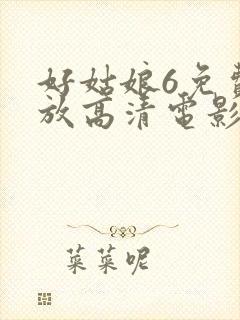 好姑娘6免費
放高清電影
菜菜呢